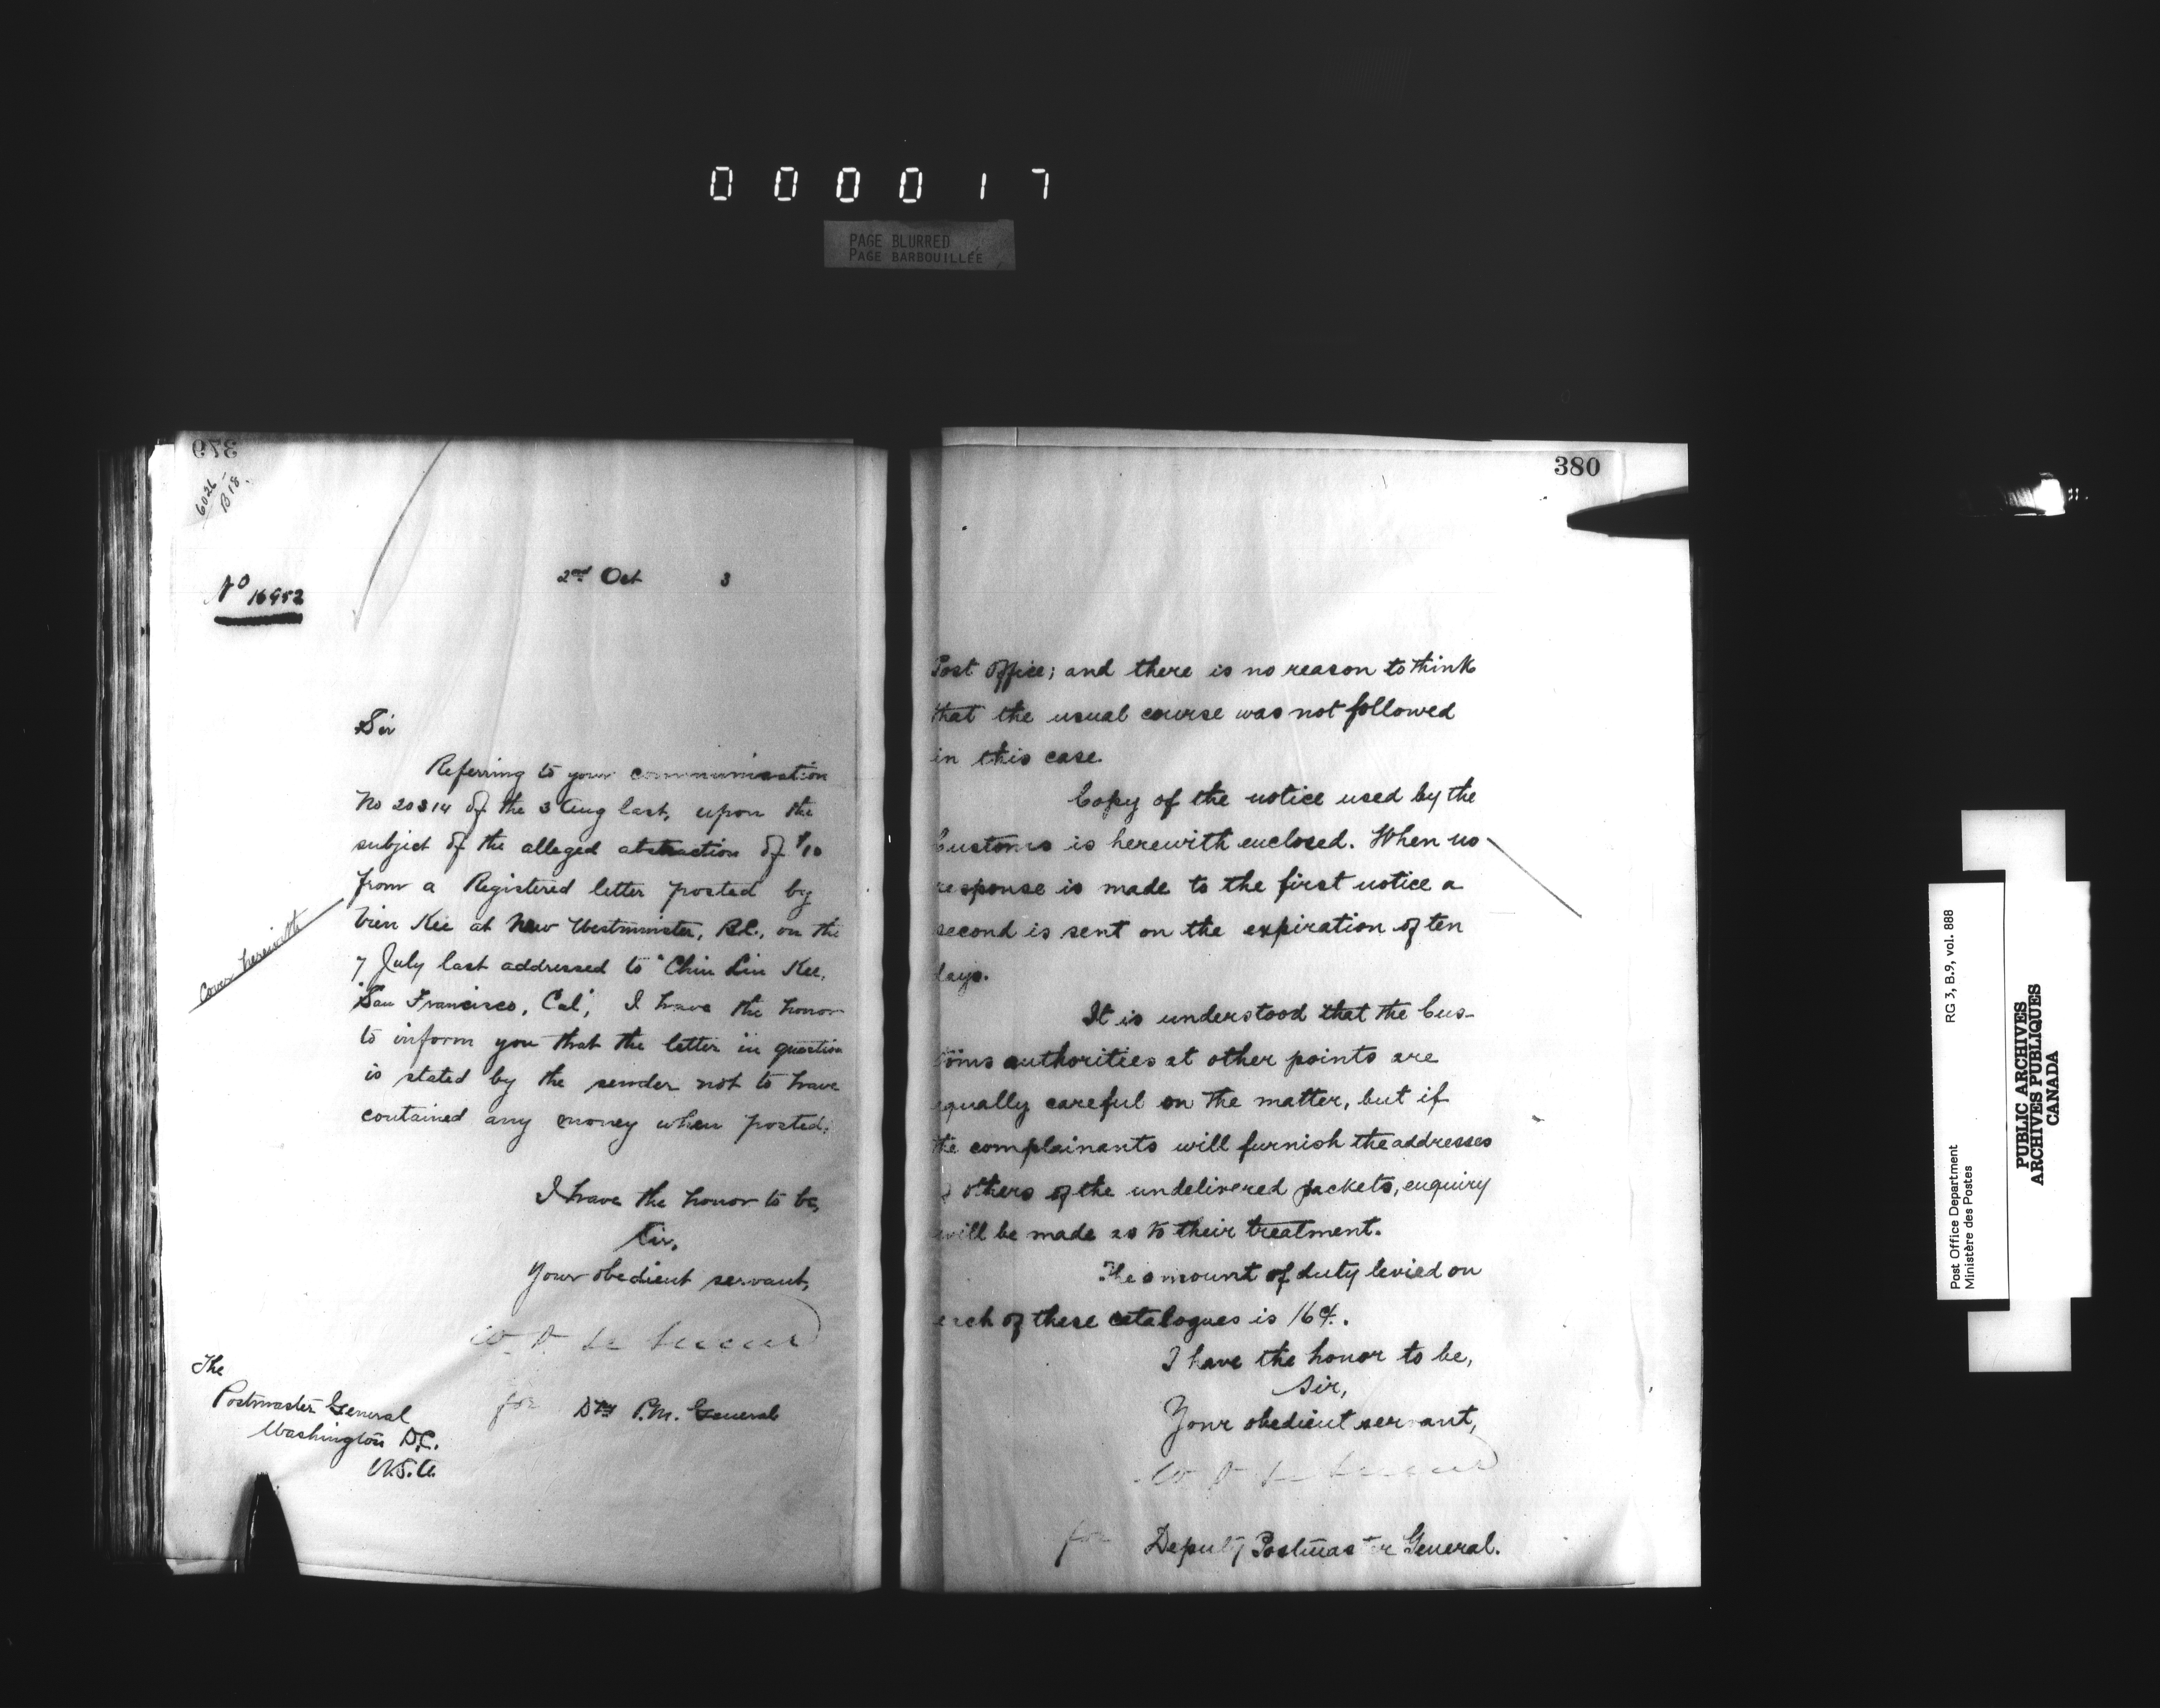 000017
PAGE BLURRED
PAGE BARBOUILLÉE
379
6026
B 18.
No 16952
2nd Oct 3
Sir
Referring to your communication
No 20314 of the 3 Aug last, upon the
subject of the alleged abstraction of $10
from a Registered letter posted by
Kee at New Westminster, B.C., on the
7 July last addressed to "Chin Lin Kee,
San Francisco, Cal", I have the honor
to inform you that the letter in question
is stated by the sender not to have
contained any money when posted.
Cover herewith
I have the honor to be,
Sir,
Your obedient servant,
W. D. Le Sueur
for Dty P.M. General
The
Postmaster General
Washington D.C.
U.S.A.
380
Post Office; and there is no reason to think
that the usual course was not followed
in this case.
Copy of the notice used by the
Customs is herewith enclosed. When no
response is made to the first notice a
second is sent on the expiration of ten
days.
It is understood that the Cus-
toms authorities at other points are
equally careful on the matter, but if
the complainants will furnish the addresses
of others of the undelivered packets, enquiry
will be made as to their treatment.
The amount of duty levied on
each of these catalogues is 16¢.
I have the honor to be,
Sir,
Your obedient servant,
W D Le Sueur
for Deputy Postmaster General.
Post Office Department
Ministère des Postes
RG 3, B.9, vol. 888
PUBLIC ARCHIVES
ARCHIVES PUBLIQUES
CANADA